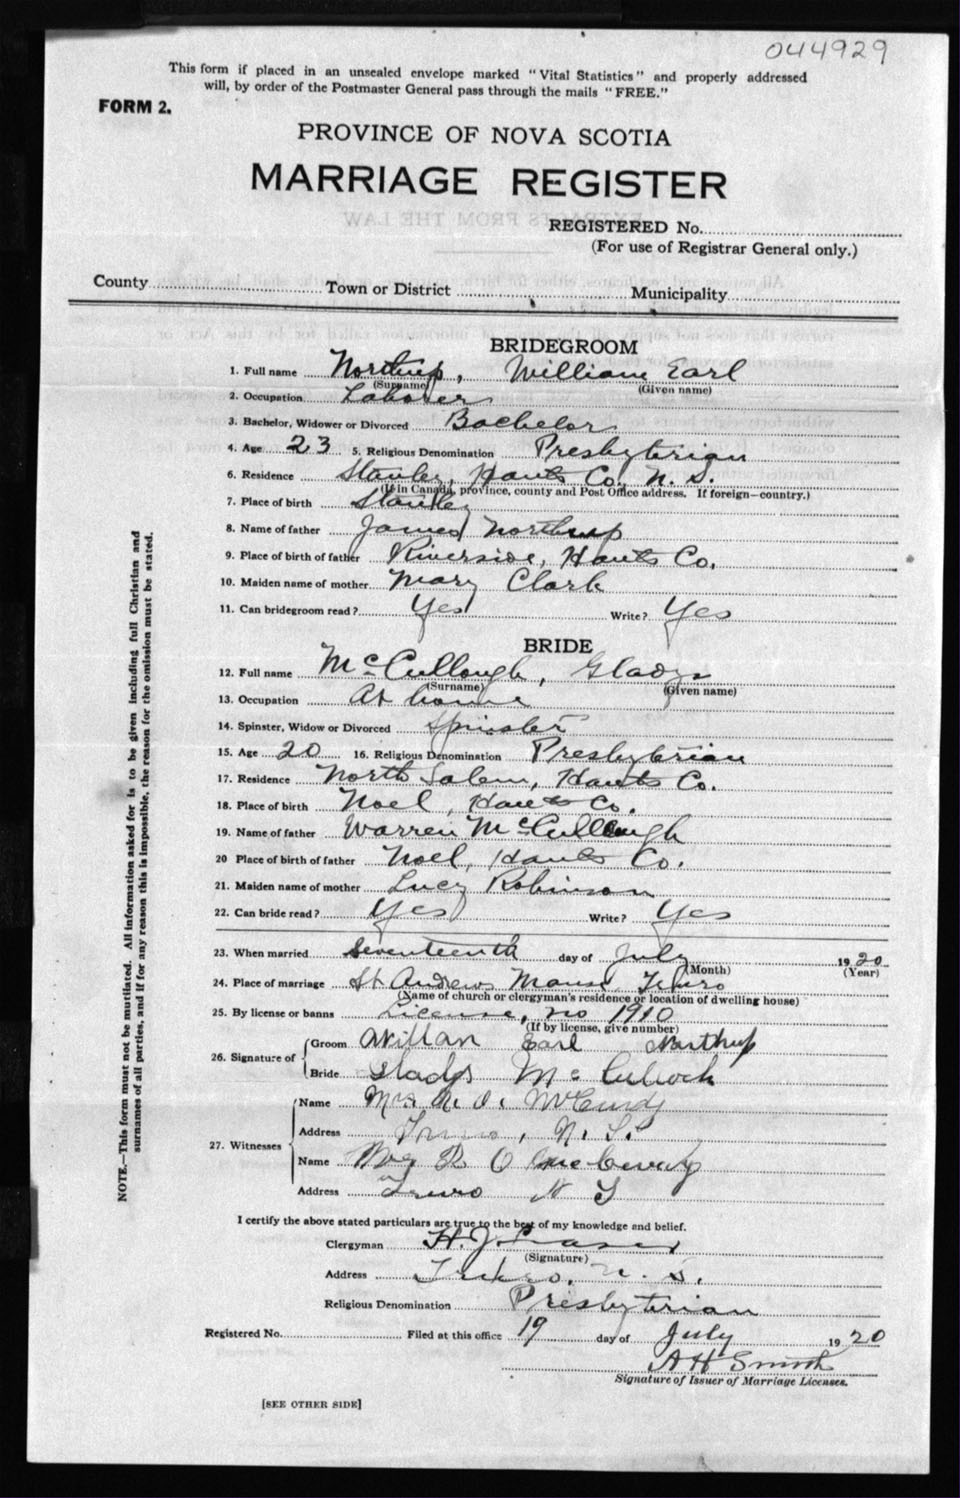 044929
This form if placed in an unsealed envelope marked "Vital Statistics" and properly addressed
will, by order of the Postmaster General pass through the mails "FREE."
FORM 2.
PROVINCE OF NOVA SCOTIA
MARRIAGE REGISTER
REGISTERED No.
(For use of Registrar General only.)
County Town or District Municipality
BRIDEGROOM
1. Full name Northup, William Earl
(Surname) (Given name)
2. Occupation Laborer
3. Bachelor, Widower or Divorced Bachelor
4. Age 23 5. Religious Denomination Presbyterian
6. Residence Stanley, Hants Co. N. S.
(If in Canada, province, county and Post Office address. If foreign—country.)
7. Place of birth Stanley
8. Name of father James Northup
9. Place of birth of father Riverside, Hants Co.
10. Maiden name of mother Mary Clark
11. Can bridegroom read? Yes Write? Yes
BRIDE
12. Full name McCullough, Gladys
(Surname) (Given name)
13. Occupation At home
14. Spinster, Widow or Divorced Spinster
15. Age 20 16. Religious Denomination Presbyterian
17. Residence North Salem, Hants Co.
18. Place of birth Noel, Hants Co.
19. Name of father Warren McCullough
20 Place of birth of father Noel, Hants Co.
21. Maiden name of mother Lucy Robinson
22. Can bride read? Yes Write? Yes
23. When married Seventeenth day of July 1920
(Month) (Year)
24. Place of marriage St. Andrews Manse, Truro
(Name of church or clergyman's residence or location of dwelling house)
25. By license or banns License, no 1910
(If by license, give number)
26. Signature of
Groom Willan Earl Northup
Bride Gladys McCulloch
27. Witnesses
Name Mrs. R. O. McCurdy
Address Truro, N. S.
Name R O McCurdy
Address Truro N S
I certify the above stated particulars are true to the best of my knowledge and belief.
Clergyman H. J. Fraser
(Signature)
Address Truro, N. S.
Religious Denomination Presbyterian
Registered No. Filed at this office 19 day of July 1920
A H Smith
Signature of Issuer of Marriage Licenses.
[SEE OTHER SIDE]
NOTE.—This form must not be mutilated. All information asked for is to be given including full Christian and
surnames of all parties, and if for any reason this is impossible, the reason for the omission must be stated.